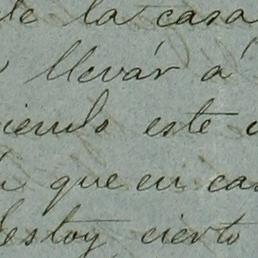 de la casa
llevár á
iendo este
que en cas
estoy cierto